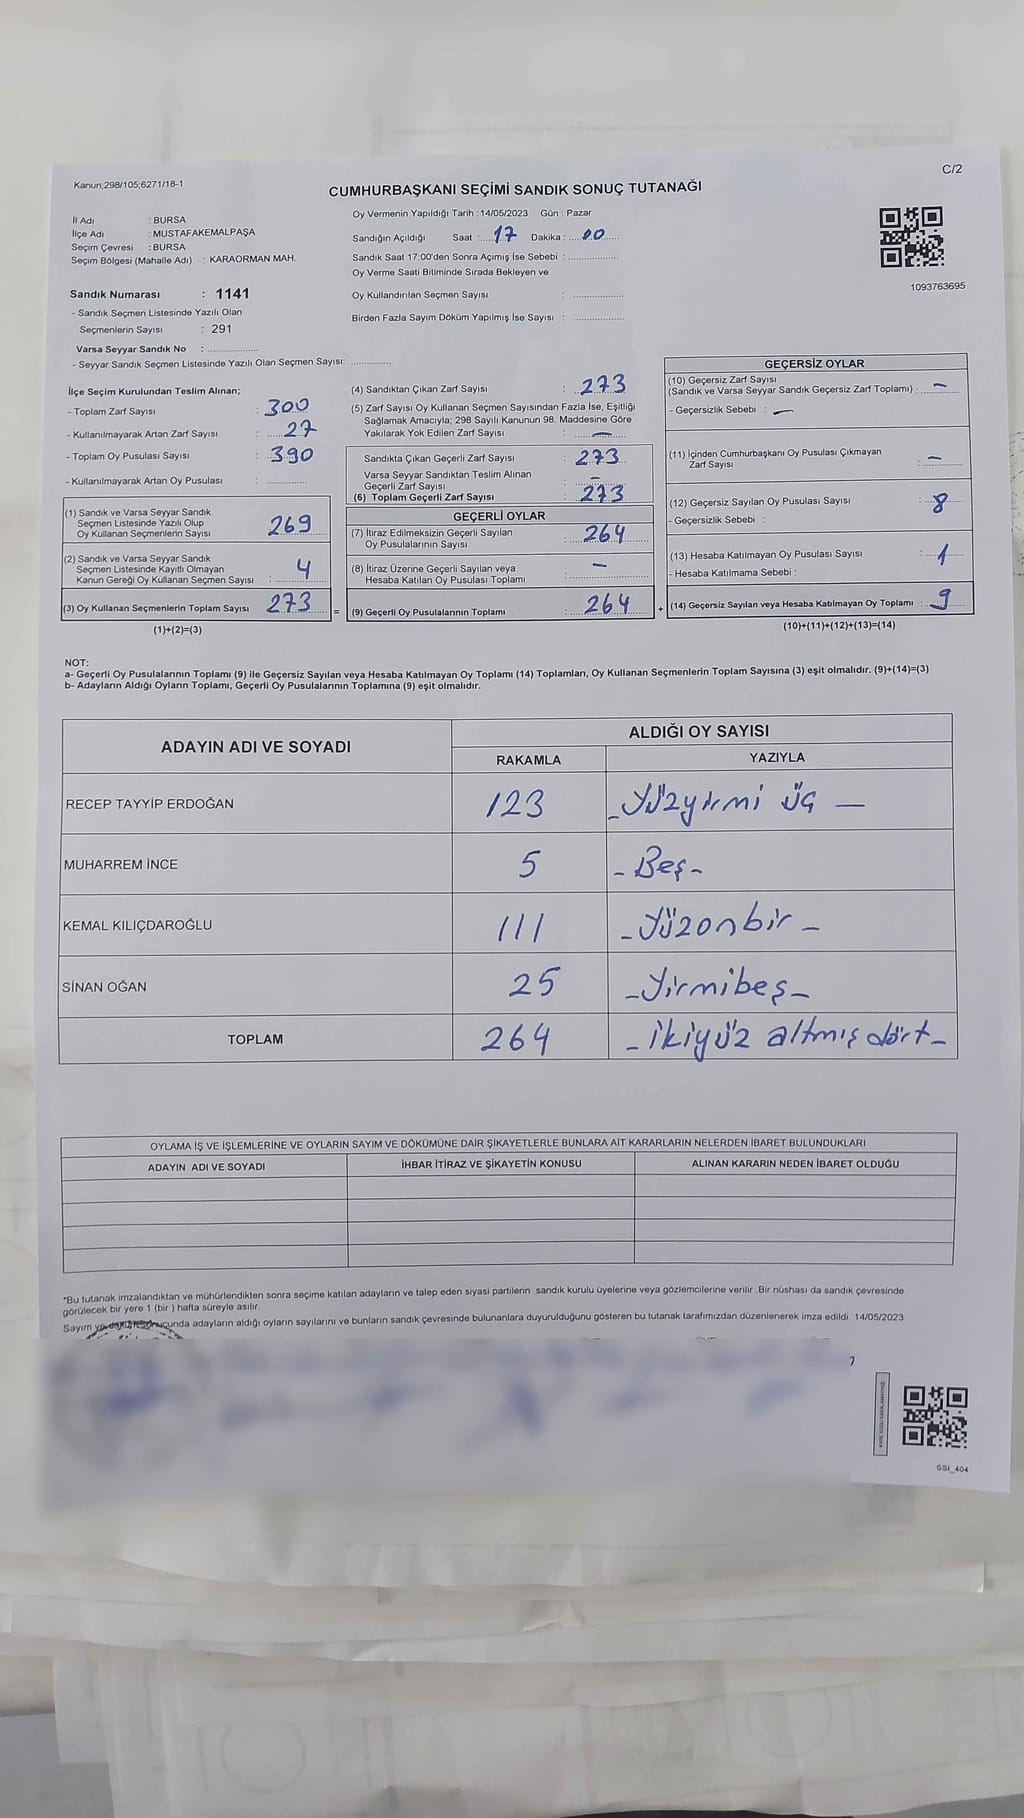 Kanun;298/105;6271/18-1
C/2
CUMHURBAŞKANI SEÇİMİ SANDIK SONUÇ TUTANAĞI
İl Adı : BURSA
İlçe Adı : MUSTAFAKEMALPAŞA
Seçim Çevresi : BURSA
Seçim Bölgesi (Mahalle Adı) : KARAORMAN MAH.
Sandık Numarası : 1141
- Sandık Seçmen Listesinde Yazılı Olan
Seçmenlerin Sayısı : 291
Varsa Seyyar Sandık No :
- Seyyar Sandık Seçmen Listesinde Yazılı Olan Seçmen Sayısı:
Oy Vermenin Yapıldığı Tarih : 14/05/2023 Gün : Pazar
Sandığın Açıldığı Saat : 17 Dakika : 00
Sandık Saat 17:00'den Sonra Açımış İse Sebebi :
Oy Verme Saati Bitiminde Sırada Bekleyen ve
Oy Kullandırılan Seçmen Sayısı :
Birden Fazla Sayım Döküm Yapılmış İse Sayısı :
1093763695
İlçe Seçim Kurulundan Teslim Alınan;
- Toplam Zarf Sayısı : 300
- Kullanılmayarak Artan Zarf Sayısı : 27
- Toplam Oy Pusulası Sayısı : 390
- Kullanılmayarak Artan Oy Pusulası :
(1) Sandık ve Varsa Seyyar Sandık
Seçmen Listesinde Yazılı Olup
Oy Kullanan Seçmenlerin Sayısı : 269
(2) Sandık ve Varsa Seyyar Sandık
Seçmen Listesinde Kayıtlı Olmayan
Kanun Gereği Oy Kullanan Seçmen Sayısı : 4
(3) Oy Kullanan Seçmenlerin Toplam Sayısı 273
(1)+(2)=(3)
=
(4) Sandıktan Çıkan Zarf Sayısı : 273
(5) Zarf Sayısı Oy Kullanan Seçmen Sayısından Fazla İse, Eşitliği
Sağlamak Amacıyla; 298 Sayılı Kanunun 98. Maddesine Göre
Yakılarak Yok Edilen Zarf Sayısı : —
Sandıkta Çıkan Geçerli Zarf Sayısı : 273
Varsa Seyyar Sandıktan Teslim Alınan
Geçerli Zarf Sayısı : —
(6) Toplam Geçerli Zarf Sayısı : 273
GEÇERLİ OYLAR
(7) İtiraz Edilmeksizin Geçerli Sayılan
Oy Pusulalarının Sayısı : 264
(8) İtiraz Üzerine Geçerli Sayılan veya
Hesaba Katılan Oy Pusulası Toplamı : —
(9) Geçerli Oy Pusulalarının Toplamı : 264
+
GEÇERSİZ OYLAR
(10) Geçersiz Zarf Sayısı
(Sandık ve Varsa Seyyar Sandık Geçersiz Zarf Toplamı) : —
- Geçersizlik Sebebi : —
(11) İçinden Cumhurbaşkanı Oy Pusulası Çıkmayan
Zarf Sayısı : —
(12) Geçersiz Sayılan Oy Pusulası Sayısı : 8
- Geçersizlik Sebebi :
(13) Hesaba Katılmayan Oy Pusulası Sayısı : 1
- Hesaba Katılmama Sebebi :
(14) Geçersiz Sayılan veya Hesaba Katılmayan Oy Toplamı : 9
(10)+(11)+(12)+(13)=(14)
NOT:
a- Geçerli Oy Pusulalarının Toplamı (9) ile Geçersiz Sayılan veya Hesaba Katılmayan Oy Toplamı (14) Toplamları, Oy Kullanan Seçmenlerin Toplam Sayısına (3) eşit olmalıdır. (9)+(14)=(3)
b- Adayların Aldığı Oyların Toplamı, Geçerli Oy Pusulalarının Toplamına (9) eşit olmalıdır.
ADAYIN ADI VE SOYADI
ALDIĞI OY SAYISI
RAKAMLA YAZIYLA
RECEP TAYYİP ERDOĞAN 123 - Yüzyirmi üç —
MUHARREM İNCE 5 - Beş -
KEMAL KILIÇDAROĞLU 111 - Yüzonbir -
SİNAN OĞAN 25 - Yirmibeş -
TOPLAM 264 - ikiyüz altmış dört -
OYLAMA İŞ VE İŞLEMLERİNE VE OYLARIN SAYIM VE DÖKÜMÜNE DAİR ŞİKAYETLERLE BUNLARA AİT KARARLARIN NELERDEN İBARET BULUNDUKLARI
ADAYIN ADI VE SOYADI İHBAR İTİRAZ VE ŞİKAYETİN KONUSU ALINAN KARARIN NEDEN İBARET OLDUĞU
*Bu tutanak imzalandıktan ve mühürlendikten sonra seçime katılan adayların ve talep eden siyasi partilerin sandık kurulu üyelerine veya gözlemcilerine verilir. Bir nüshası da sandık çevresinde
görülecek bir yere 1 (bir ) hafta süreyle asılır.
Sayım ve sonucunda adayların aldığı oyların sayılarını ve bunların sandık çevresinde bulunanlara duyurulduğunu gösteren bu tutanak tarafımızdan düzenlenerek imza edildi. 14/05/2023
SSI_404